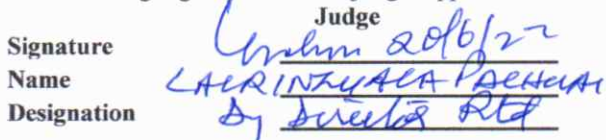 Judge
Signature 20/6/22
Name LALRINZUALA PACHUAU
Designation Dy Director Rtd